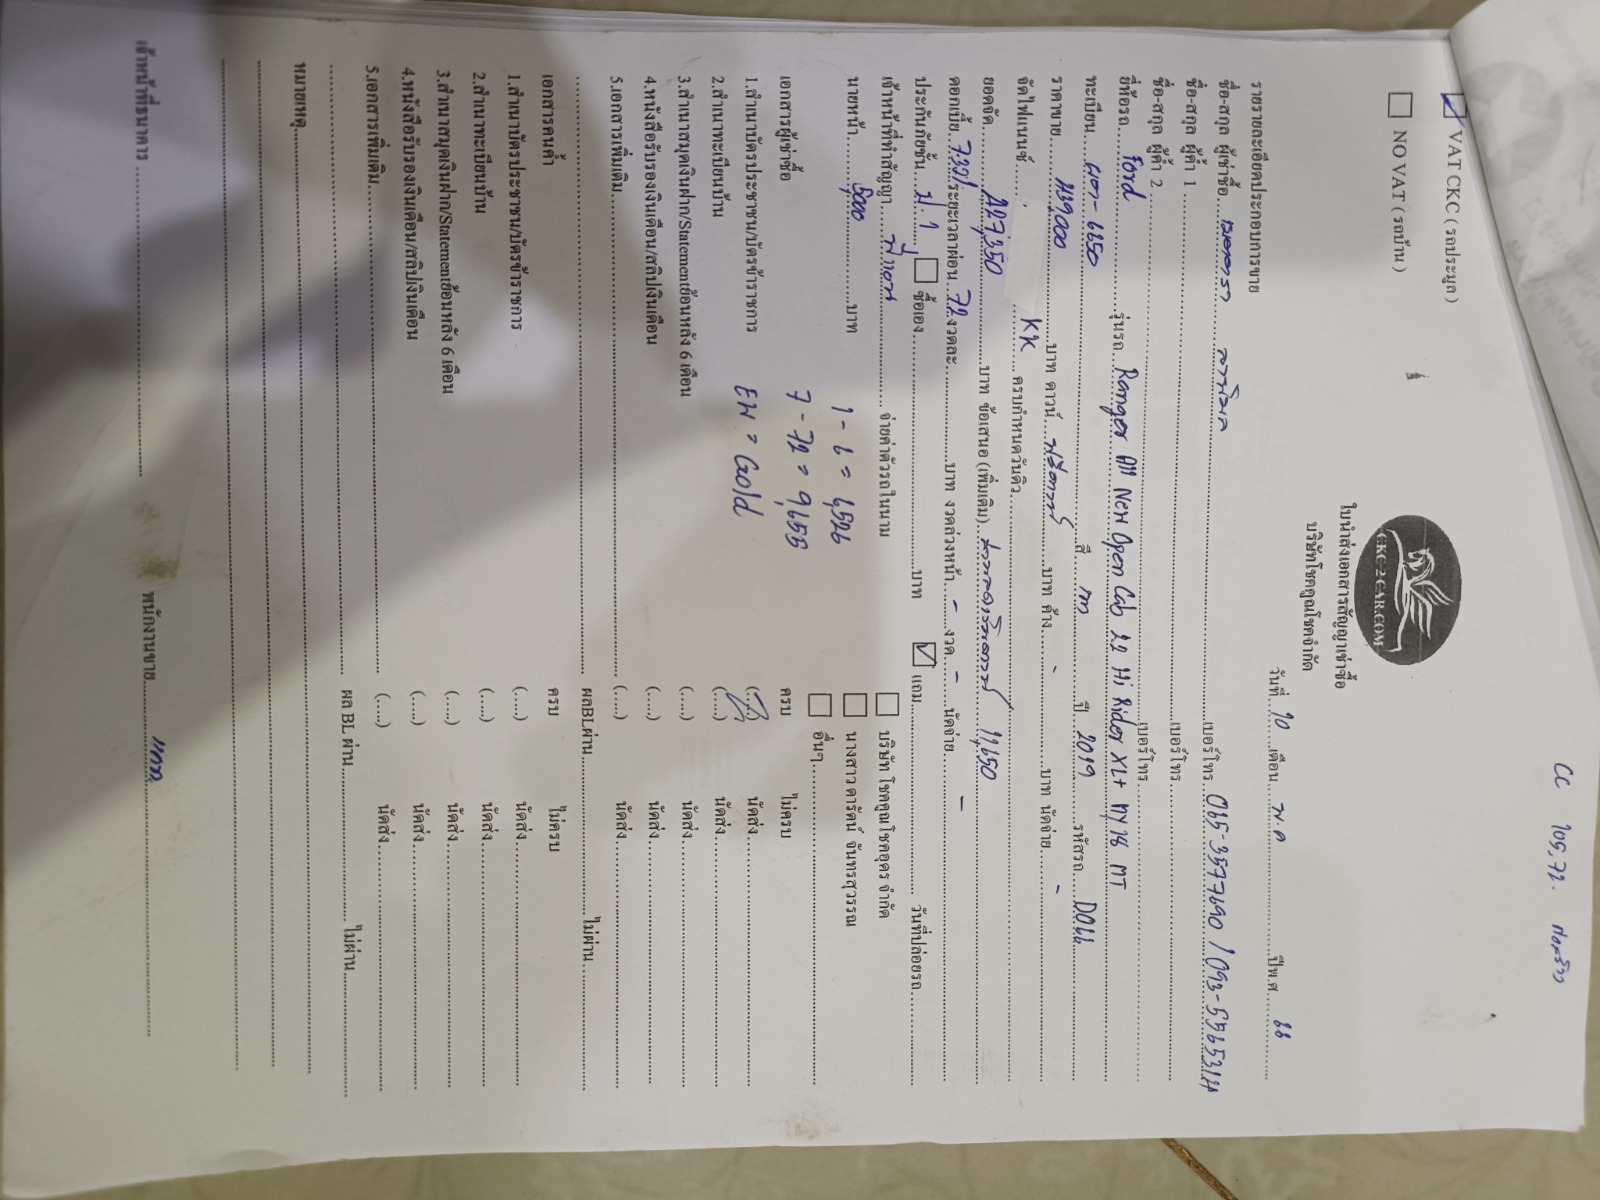 CC 105,72.
CKC 2 CAR.COM
VAT CKC ( รถประมูล )
NO VAT ( รถบ้าน )
ใบนำส่งเอกสารสัญญาเช่าซื้อ
บริษัทโชคคูณโชคจำกัด
วันที่ 10 เดือน พ.ค ปีพ.ศ 66
รายรายละเอียดประกอบการขาย
ชื่อ-สกุล ผู้เช่าซื้อ เบอร์โทร 065-3577690 / 093-5565314
ชื่อ-สกุล ผู้ค้ำ 1 เบอร์โทร
ชื่อ-สกุล ผู้ค้ำ 2 เบอร์โทร
ยี่ห้อรถ Ford รุ่นรถ Ranger All New Open Cab 2.2 Hi Rider XL+ MY18 MT
ทะเบียน 6650 สี เทา ปี 2019 รหัสรถ D066
ราคาขาย 439000 บาท ดาวน์ ฟรีดาวน์ บาท ค้าง - บาท นัดจ่าย -
จัดไฟแนนซ์ KK ครบกำหนดวันคิว
ยอดจัด 427,350 บาท ข้อเสนอ (เพิ่มเติม) 11,650
ดอกเบี้ย ระยะเวลาผ่อน 72 งวดละ บาท งวดล่วงหน้า - งวด - นัดจ่าย -
ประกันภัยชั้น ป.1 ซื้อเอง บาท แถม วันที่ปล่อยรถ
เจ้าหน้าที่ทำสัญญา จ่ายค่าตัวรถในนาม บริษัท โชคคูณโชคอุดร จำกัด
นายหน้า 5000 บาท นางสาวดารัตน์ จันทรสุวรรณ
อื่นๆ
1 - 6 = 6,526
7 - 72 = 9,655
EW = Gold
เอกสารผู้เช่าซื้อ ครบ ไม่ครบ
1.สำเนาบัตรประชาชน/บัตรข้าราชการ (....) นัดส่ง
2.สำเนาทะเบียนบ้าน (....) นัดส่ง
3.สำเนาสมุดเงินฝาก/Statementย้อนหลัง 6 เดือน (....) นัดส่ง
4.หนังสือรับรองเงินเดือน/สลิปเงินเดือน (....) นัดส่ง
5.เอกสารเพิ่มเติม (....) นัดส่ง
ผลBLผ่าน ไม่ผ่าน
เอกสารคนค้ำ ครบ ไม่ครบ
1.สำเนาบัตรประชาชน/บัตรข้าราชการ (....) นัดส่ง
2.สำเนาทะเบียนบ้าน (....) นัดส่ง
3.สำเนาสมุดเงินฝาก/Statementย้อนหลัง 6 เดือน (....) นัดส่ง
4.หนังสือรับรองเงินเดือน/สลิปเงินเดือน (....) นัดส่ง
5.เอกสารเพิ่มเติม (....) นัดส่ง
ผล BL ผ่าน ไม่ผ่าน
หมายเหตุ
เจ้าหน้าที่ธนาคาร พนักงานขาย